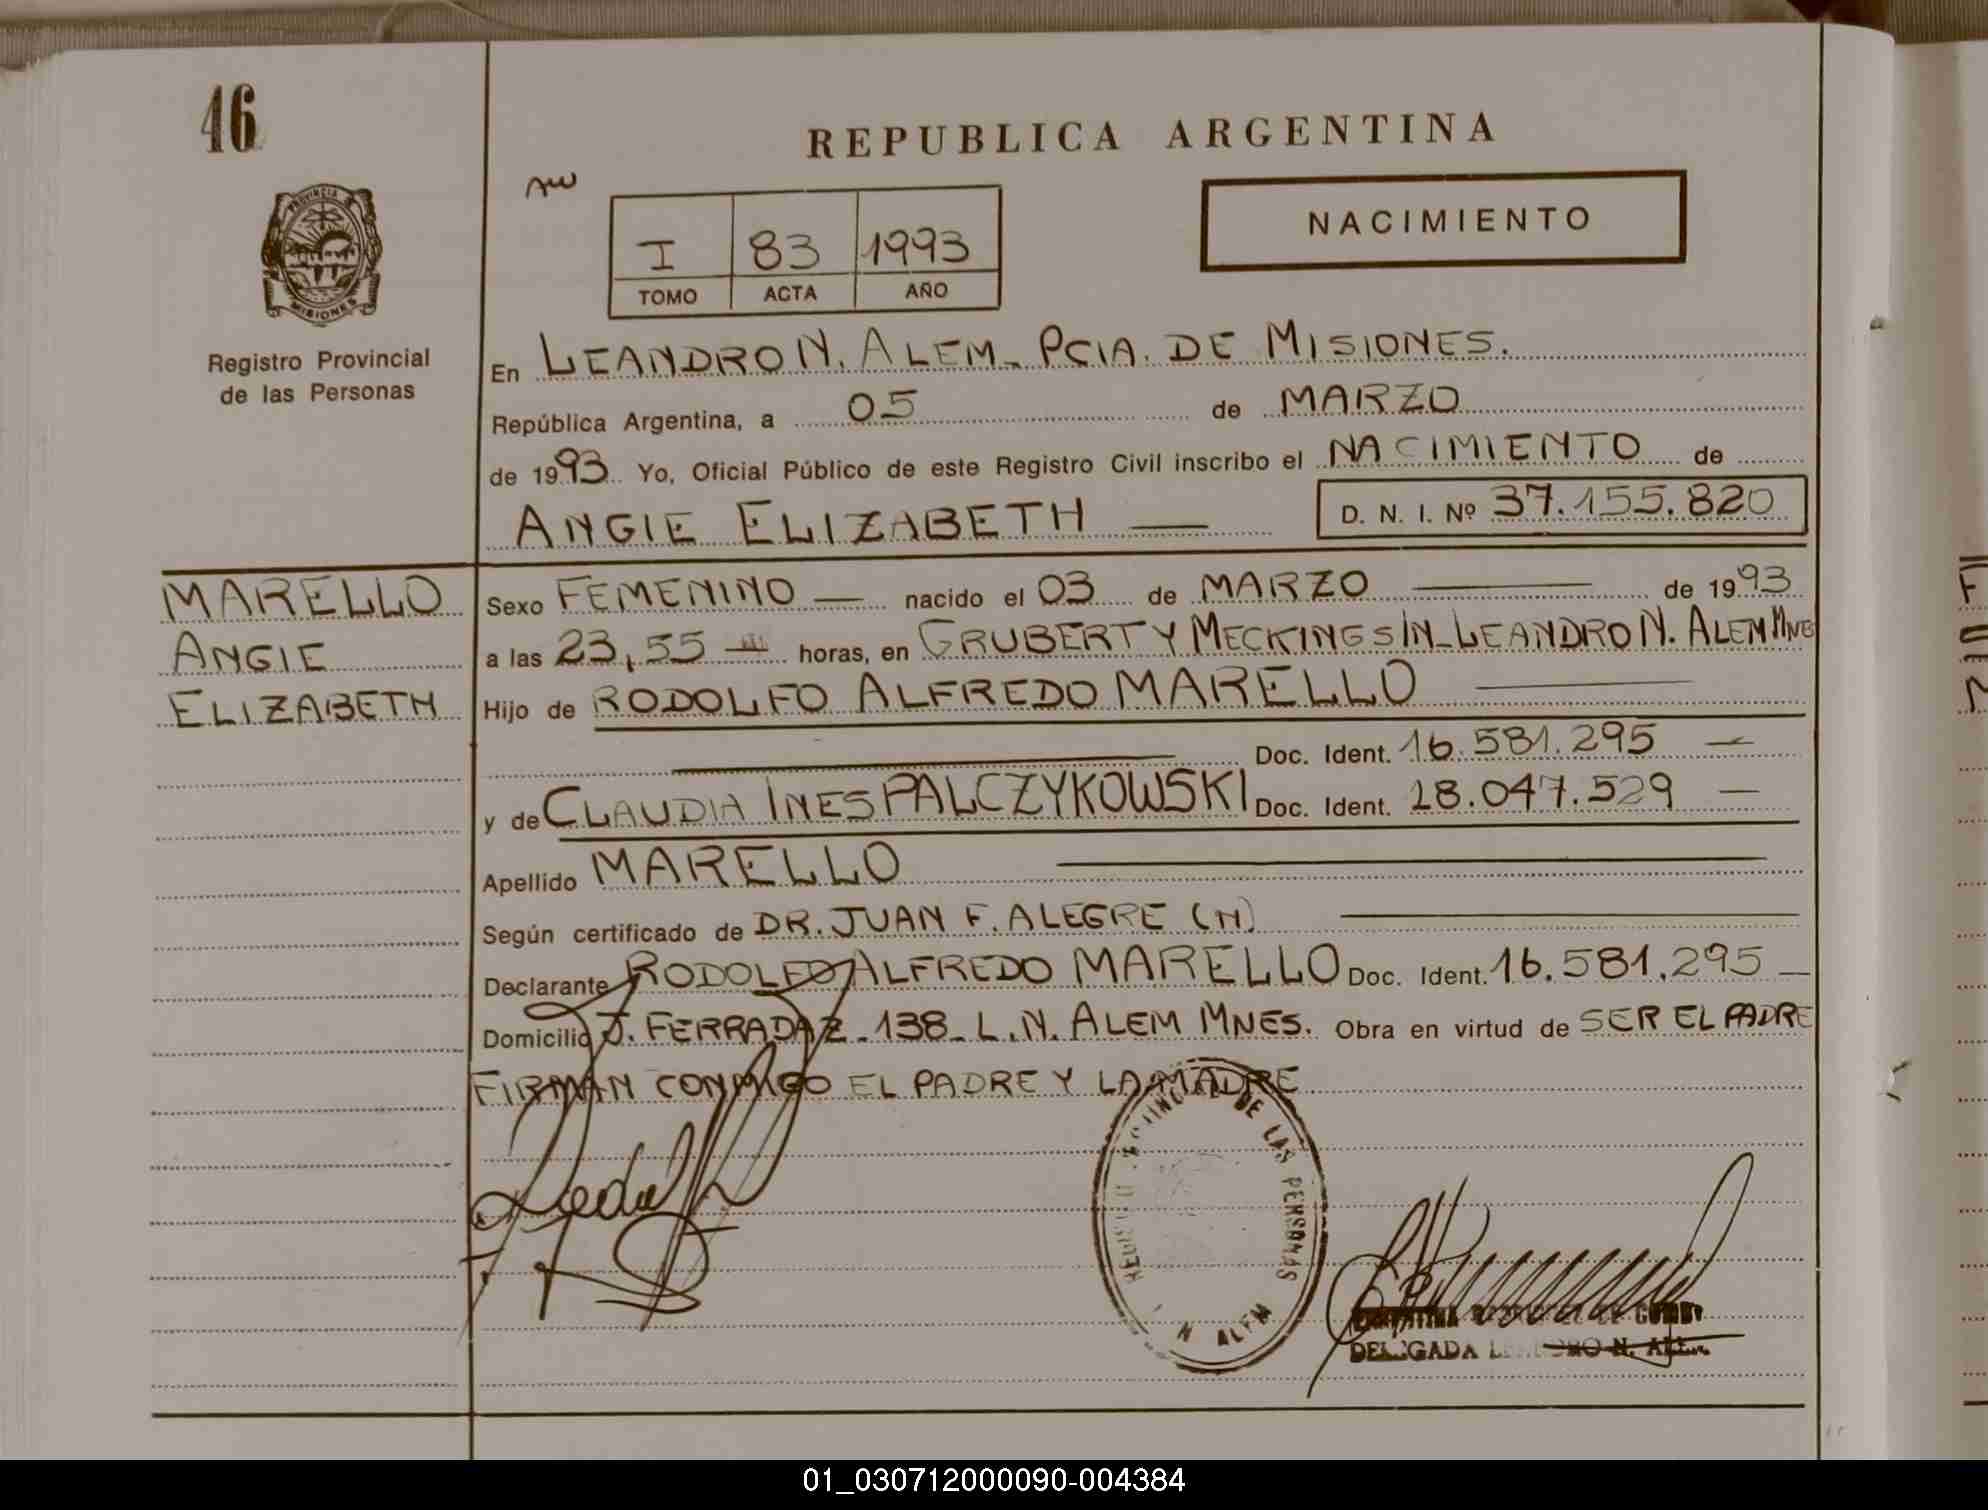 46
REPUBLICA ARGENTINA
PROVINCIA
MISIONES
Registro Provincial
de las Personas
NACIMIENTO
I 83 1993
TOMO ACTA AÑO
En LEANDRO N. ALEM - PCIA. DE MISIONES.
República Argentina, a 05 de MARZO
de 1993 Yo, Oficial Público de este Registro Civil inscribo el NACIMIENTO de
ANGIE ELIZABETH — D. N. I. Nº 37.155.820
MARELLO
ANGIE
ELIZABETH
Sexo FEMENINO — nacido el 03 de MARZO — de 1993
a las 23,55 — horas, en GRUBERT Y MECKING S/N - LEANDRO N. ALEM MNES
Hijo de RODOLFO ALFREDO MARELLO —
Doc. Ident. 16.581.295 —
y de CLAUDIA INES PALCZYKOWSKI Doc. Ident. 18.047.529 —
Apellido MARELLO
Según certificado de DR. JUAN F. ALEGRE (N)
Declarante RODOLFO ALFREDO MARELLO Doc. Ident. 16.581.295 —
Domicilio J. FERRADAZ - 138 - L. N. ALEM MNES. Obra en virtud de SER EL PADRE
FIRMAN CONMIGO EL PADRE Y LA MADRE
DE LAS PERSONAS
N ALEM
DELEGADA LEANDRO N. ALEM
01_030712000090-004384